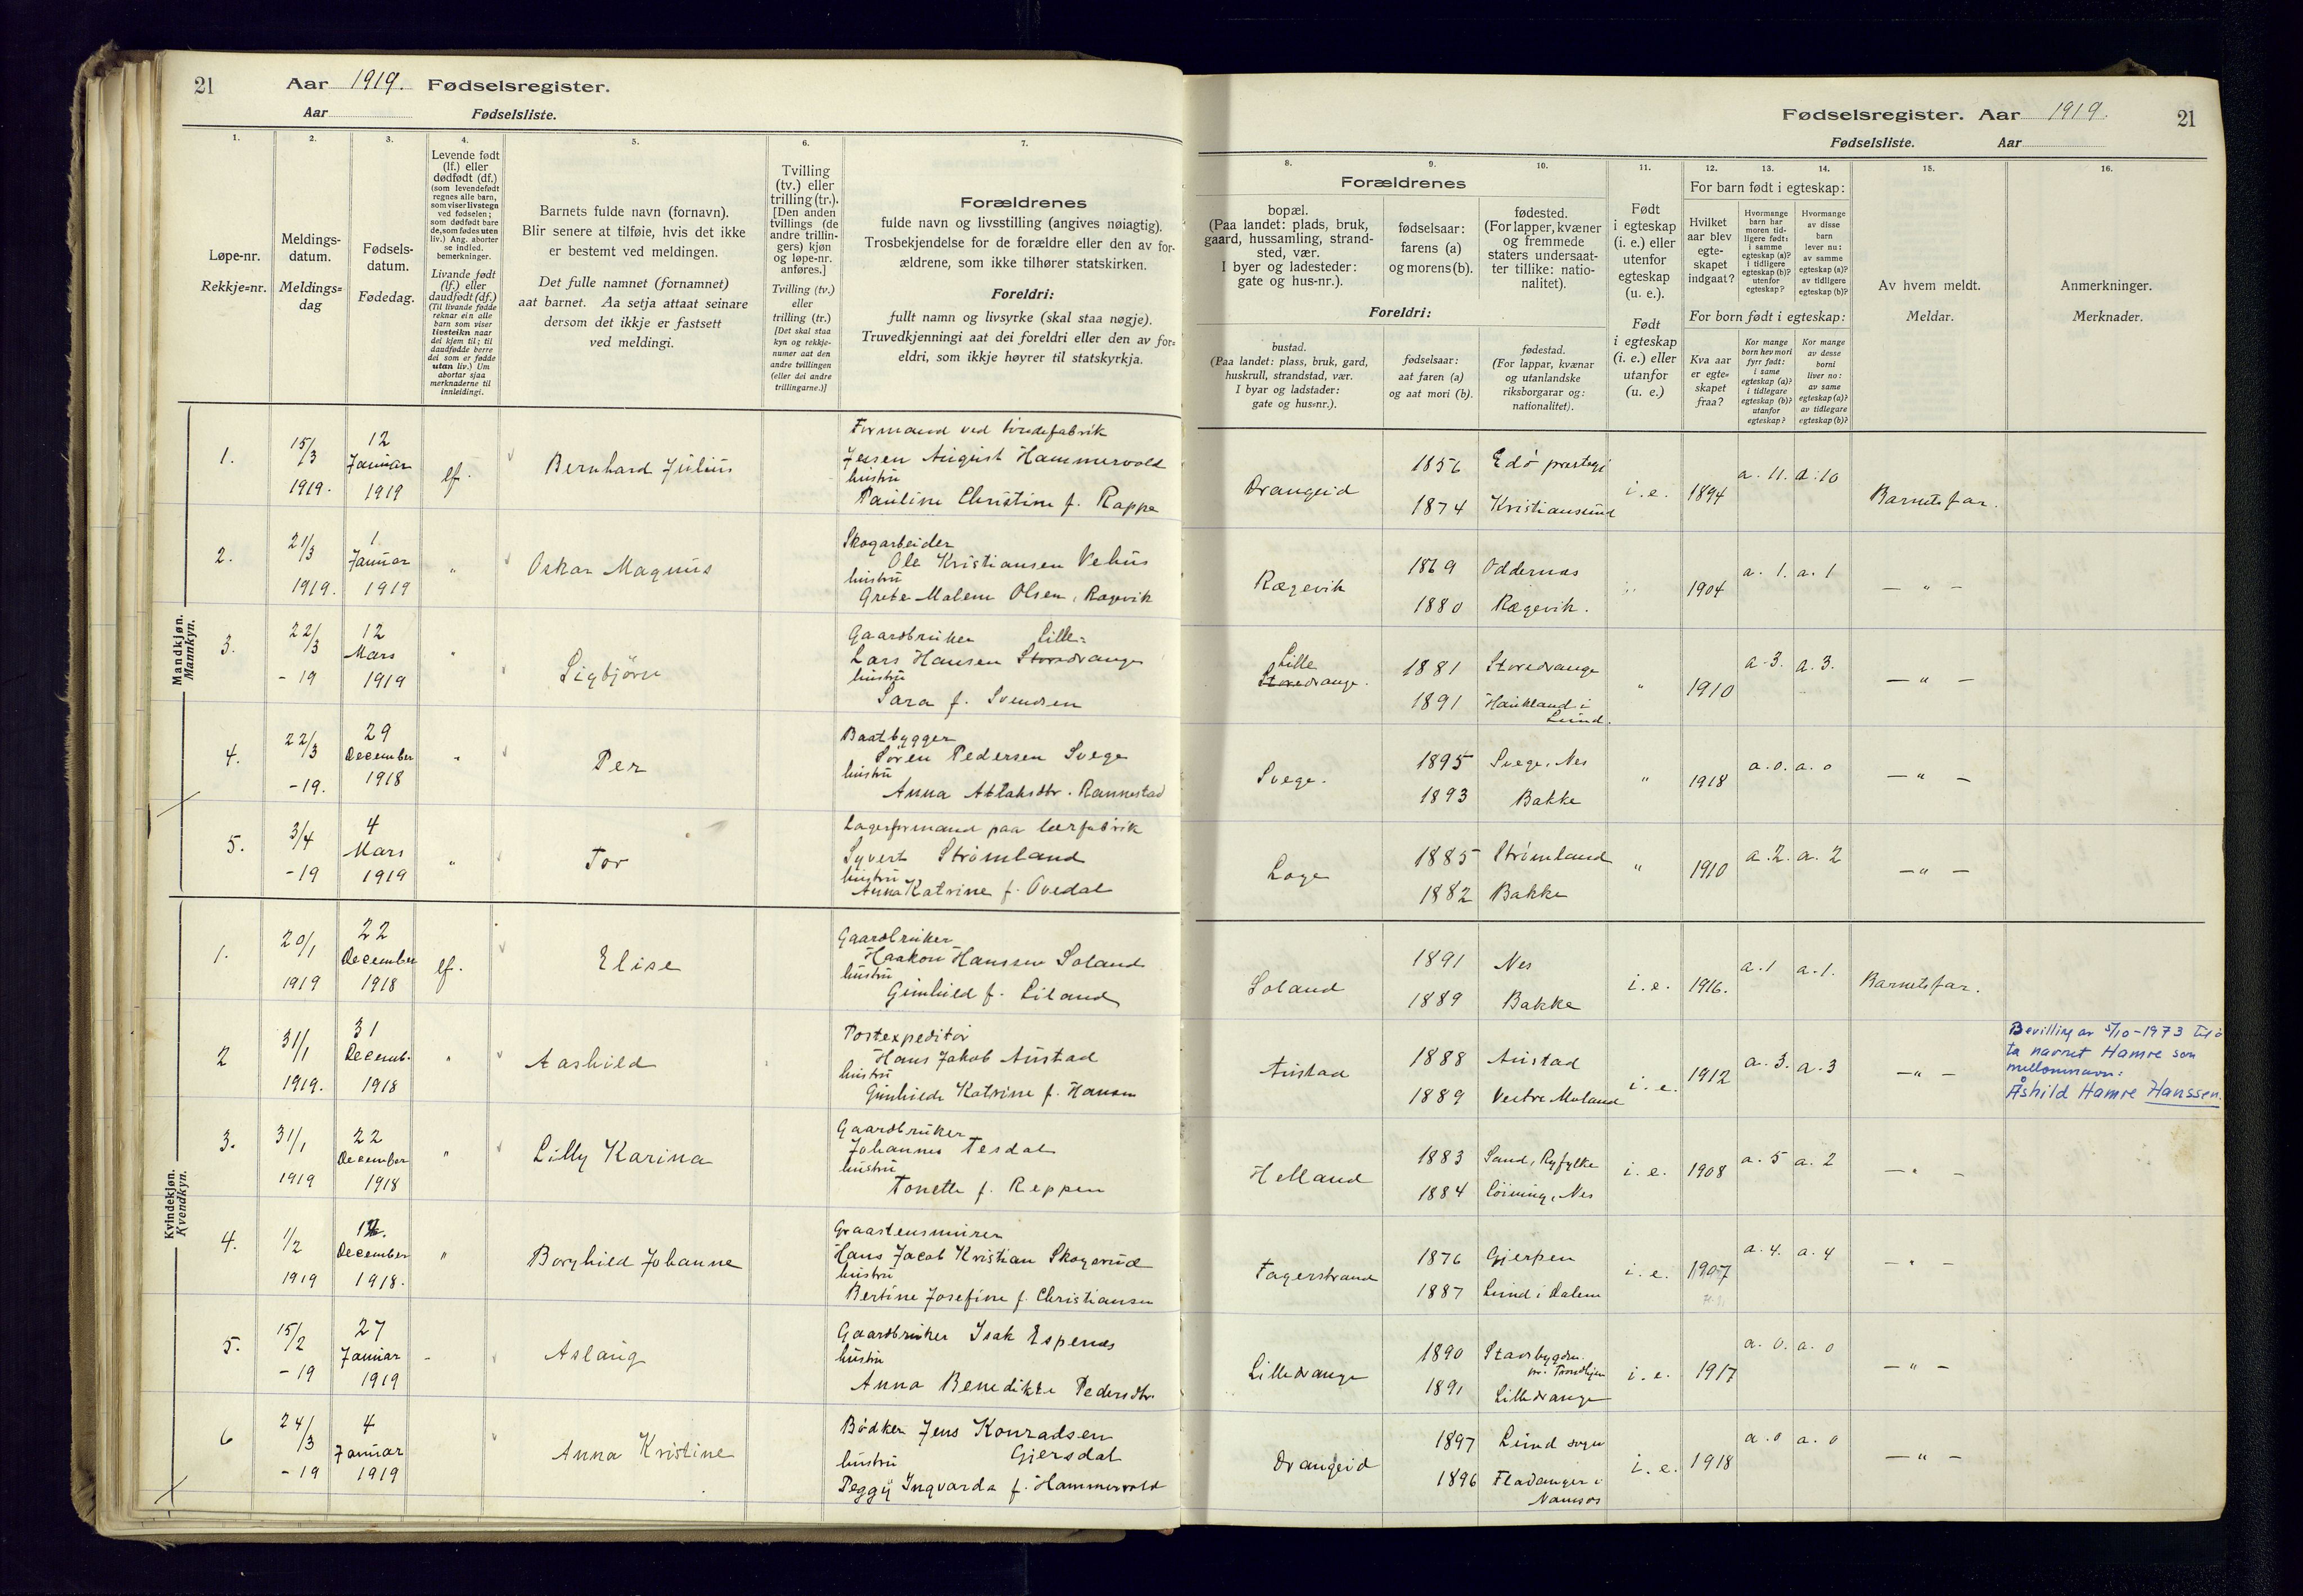 21 Aar 1919. Fødselsregister.
Aar Fødselsliste.
1. 2. 3. 4. 5. 6. 7.
Løpe-nr.
Rekkje=nr.
Meldings-
datum.
Meldings=
dag
Fødsels-
datum.
Fødedag.
Levende født
(lf.) eller
dødfødt (df.)
(som levendefødt
regnes alle barn,
som viser livstegn
ved fødselen;
som dødfødt bare
de, som fødes uten
liv.) Ang. aborter
se indled.
bemerkninger.
Livande født
(lf.) eller
daudfødt (df.)
(Til livande fødde
reknar ein alle
barn som viser
livsteikn naar
dei kjem til; til
daudfødde berre
dei som er fødde
utan liv.) Um
abortar sjaa
merknaderne til
innleidingi.
Barnets fulde navn (fornavn).
Blir senere at tilføie, hvis det ikke
er bestemt ved meldingen.
Det fulle namnet (fornamnet)
aat barnet. Aa setja attaat seinare
dersom det ikkje er fastsett
ved meldingi.
Tvilling
(tv.) eller
trilling (tr.).
[Den anden
tvillings (de
andre trillin-
gers) kjøn
og løpe-nr.
anføres.]
Tvilling (tv.)
eller
trilling (tr.)
[Det skal staa
kyn og rekkje-
numer aat den
andre tvillingen
(eller dei andre
trillingarne.)]
Forældrenes
fulde navn og livsstilling (angives nøiagtig).
Trosbekjendelse for de forældre eller den av for-
ældrene, som ikke tilhører statskirken.
Foreldri:
fullt namn og livsyrke (skal staa nøgje).
Truvedkjenningi aat dei foreldri eller den av for=
eldri, som ikkje høyrer til statskyrkja.
Mandkjøn.
Mannkyn.
1. 15/3 1919. 12 Januar 1919 lf. Bernhard Julius
Formand ved tøndefabrik
Jensen August Hammervold
hustru
Pauline Christine f. Rappe
2. 21/3 1919. 1 Januar 1919 " Oskar Magnus
Skogarbeider
Ole Kristiansen Vehus
hustru
Grete Malene Olsen, Rægevik
3. 22/3 -19 12 Mars 1919 " Sigbjörn
Gaardbruker Lille=
Lars Hansen Storedrange
hustru
Sara f. Svendsen
4. 22/3 -19. 29 December 1918 " Per
Baatbygger
Sören Pedersen Svege
hustru
Anna Atlaksdtr. Rannestad
5. 3/4 -19 4 Mars 1919 " Tor
Lagerformand paa lærfabrik
Syvert Strömland
hustru
Anna Katrine f. Ovedal
Kvindekjøn.
Kvendkyn.
1. 20/1 1919 22 December 1918 lf. Elise
Gaardbruker
Haakon Hanssen Soland
hustru
Gunhild f. Liland
2 31/1 1919. 31 Decemb. 1918 " Aashild
Postexpeditør
Hans Jakob Austad
hustru
Gunhilde Katrine f. Hansen
3. 31/1 1919 22 December 1918 " Lilly Karina
Gaardbruker
Johannes Tesdal
hustru
Tonette f. Reppen
4. 1/2 1919 December 1918. " Borghild Johanne
Graastensmurer
Hans Jacob Kristian Skogsrud
hustru
Bertine Josefine f. Christiansen
5. 15/2 -19 27 Januar 1919 - Aslaug
Gaardbruker Isak Espenes
hustru
Anna Benedikte Pedersdtr.
6 24/3 -19 4 Januar 1919 Anna Kristine
Bødker Jens Konradsen
hustru Gjersdal
Peggy Ingvarda f. Hammervold
Fødselsregister. Aar 1919. 21
Fødselsliste. Aar
8. 9. 10. 11. 12. 13. 14. 15. 16.
Forældrenes
bopæl.
(Paa landet: plads, bruk,
gaard, hussamling, strand-
sted, vær.
I byer og ladesteder:
gate og hus-nr.).
fødselsaar:
farens (a)
og morens (b).
fødested.
(For lapper, kvæner
og fremmede
staters undersaat-
ter tillike: natio-
nalitet).
Foreldri:
bustad.
(Paa landet: plass, bruk, gard,
huskrull, strandstad, vær.
I byar og ladstader:
gate og hus=nr.).
fødselsaar:
aat faren (a)
og aat mori (b).
fødestad.
(For lappar, kvænar
og utanlandske
riksborgarar og:
nationalitet).
Født
i egteskap
(i. e.) eller
utenfor
egteskap
(u. e.).
Født
i egteskap
(i. e.) eller
utanfor
(u. e.)
For barn født i egteskap:
Hvilket
aar blev
egte-
skapet
indgaat?
Hvormange
barn har
moren tid-
ligere født:
i samme
egteskap (a)?
i tidligere
egteskap (b)?
utenfor
egteskap?
Hvormange
av disse
barn
lever nu:
av samme
egteskap (a)?
av tidligere
egteskap (b)?
For born født i egteskap:
Kva aar
er egte=
skapet
fraa?
Kor mange
born hev mori
fyrr født:
i same
egteskap (a)?
i tidlegare
egteskap (b)?
utanfor
egteskap?
Kor mange
av desse
borni
liver no:
av same
egteskap (a)?
av tidlegare
egteskap (b)?
Av hvem meldt.
Meldar.
Anmerkninger.
Merknader.
Drangeid 1856 Edö prestegj i. e. 1894 a. 11. a: 10 Barnets far.
1874 Kristiansund
Rægevik 1869 Oddernes " 1904 a. 1. a. 1 — " —
1880 Rægevik.
Lille
Storedrange. 1881 Storedrange " 1910 a. 3. a. 3. — " —
1891 Haukland i
Lund.
Svege. 1895 Svege, Nes " 1918 a. 0. a. 0 — " —
1893 Bakke
Loge 1885 Strömland " 1910 a. 2. a. 2 — " —
1882 Bakke
Soland 1891 Nes i. e. 1916. a. 1 a. 1. Barnets far.
1889 Bakke
Austad 1888 Austad i. e. 1912 a. 3. a. 3 — " —
1889 Vestre Moland
Bevilling av 5/10-1973 til å
ta navnet Hamre som
mellomnavn:
Åshild Hamre Hanssen.
Helland 1883 Sand, Ryfylke i. e. 1908 a. 5 a. 2 — " —
1884 Löining, Nes
Fagerstrand 1876 Gjerpen i. e. 1907 a. 4. a. 4 — " —
1887 Lund i Dalene
Lilledrange 1890 Stadsbygden
pr. Trondhjem i. e. 1917 a. 0. a. 0 — " —
1891 Lilledrange
Drangeid 1897 Lund sogn i. e. 1918 a. 0 a. 0 — " —
1896 Fladanger i
Namsos